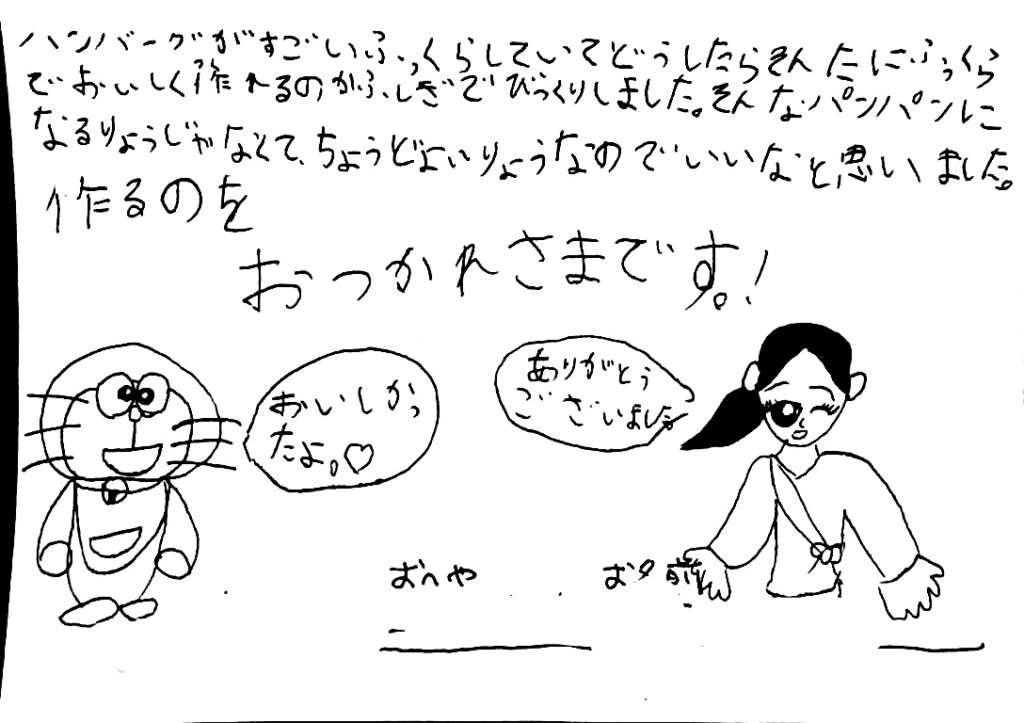 ハンバーグがすごいふっくらしていてどうしたらそんなにふっくら
でおいしく作れるのかふしぎでびっくりしました。そんなパンパンに
なるりょうじゃなくて、ちょうどよいりょうなのでいいなと思いました。
作るのを
おつかれさまです!
おいしかっ
たよ。♡
ありがとう
ございました
おへや
お夕前